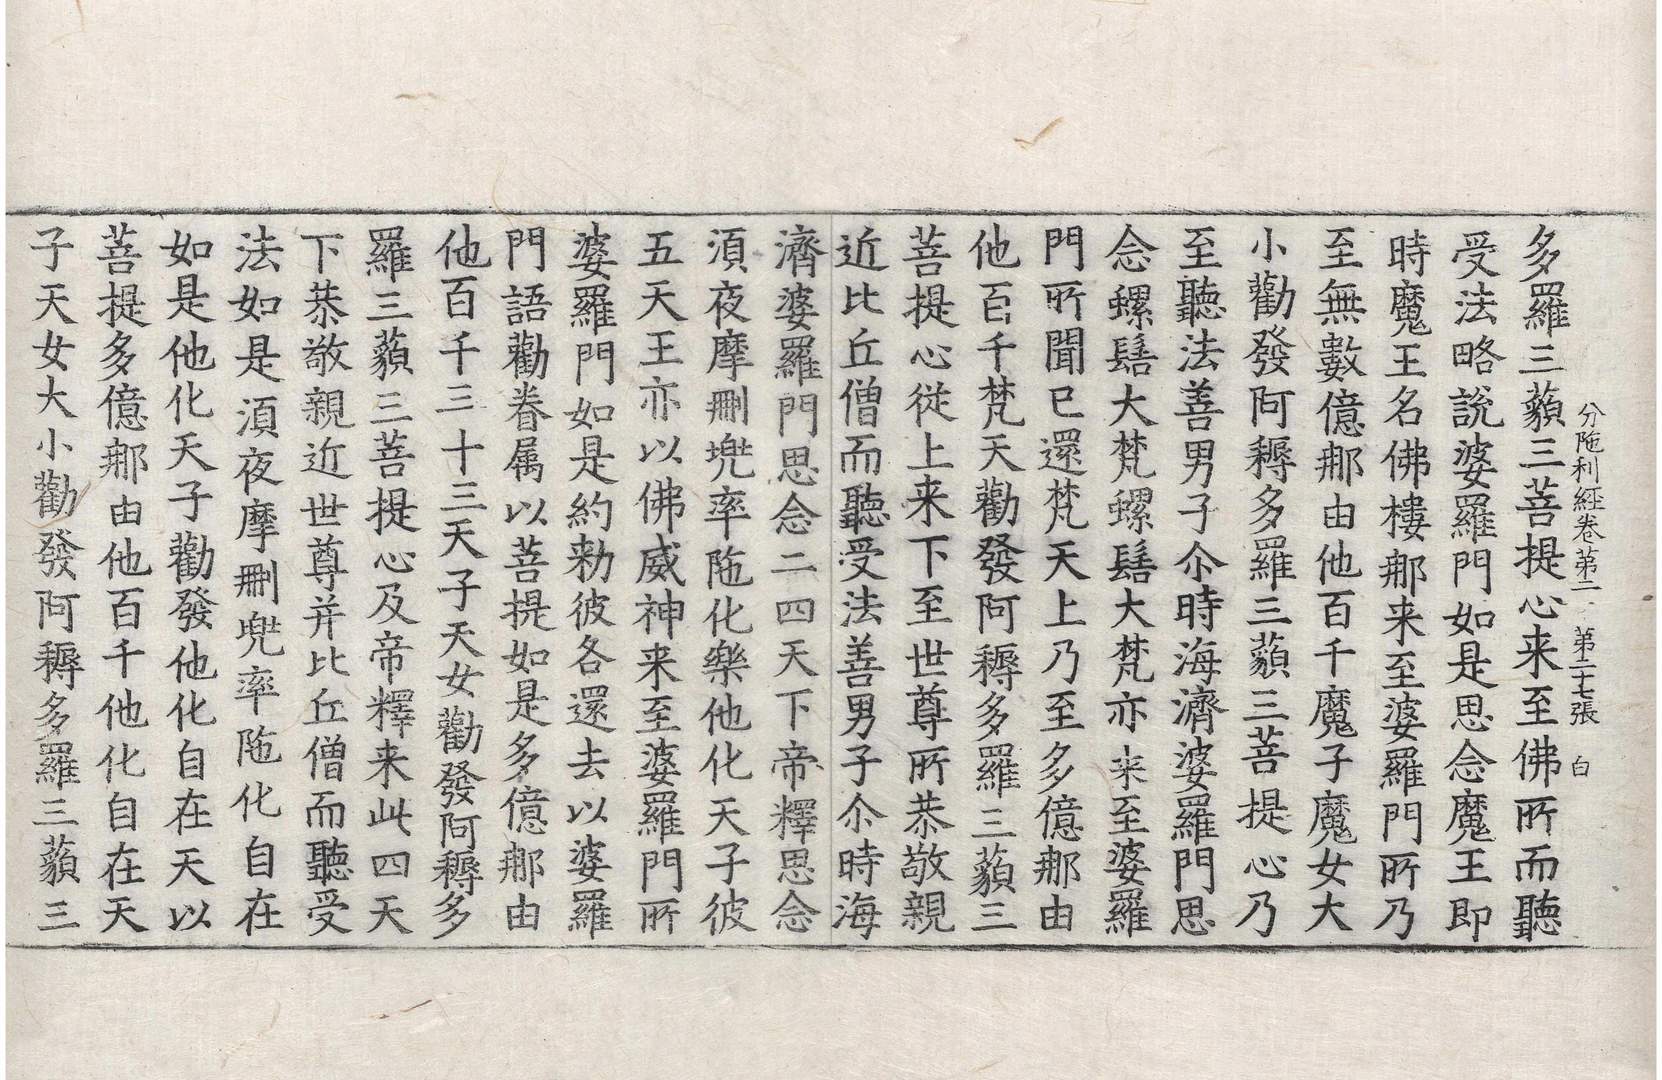 分陁利經卷第二　第二十七張　白
多羅三藐三菩提心来至佛所而聽
受法略說婆羅門如是思念魔王即
時魔王名佛樓那来至婆羅門所乃
至無數億那由他百千魔子魔女大
小勸發阿耨多羅三藐三菩提心乃
至聽法善男子尒時海濟婆羅門思
念螺髻大梵螺髻大梵亦来至婆羅
門所聞已還梵天上乃至多億那由
他百千梵天勸發阿耨多羅三藐三
菩提心從上来下至世尊所恭敬親
近比丘僧而聽受法善男子尒時海
濟婆羅門思念二四天下帝釋思念
須夜摩刪兜率陁化樂他化天子彼
五天王亦以佛威神来至婆羅門所
婆羅門如是約勑彼各還去以婆羅
門語勸眷属以菩提如是多億那由
他百千三十三天子天女勸發阿耨多
羅三藐三菩提心及帝釋来此四天
下恭敬親近世尊并比丘僧而聽受
法如是須夜摩刪兜率陁化自在
如是他化天子勸發他化自在天以
菩提多億那由他百千他化自在天
子天女大小勸發阿耨多羅三藐三